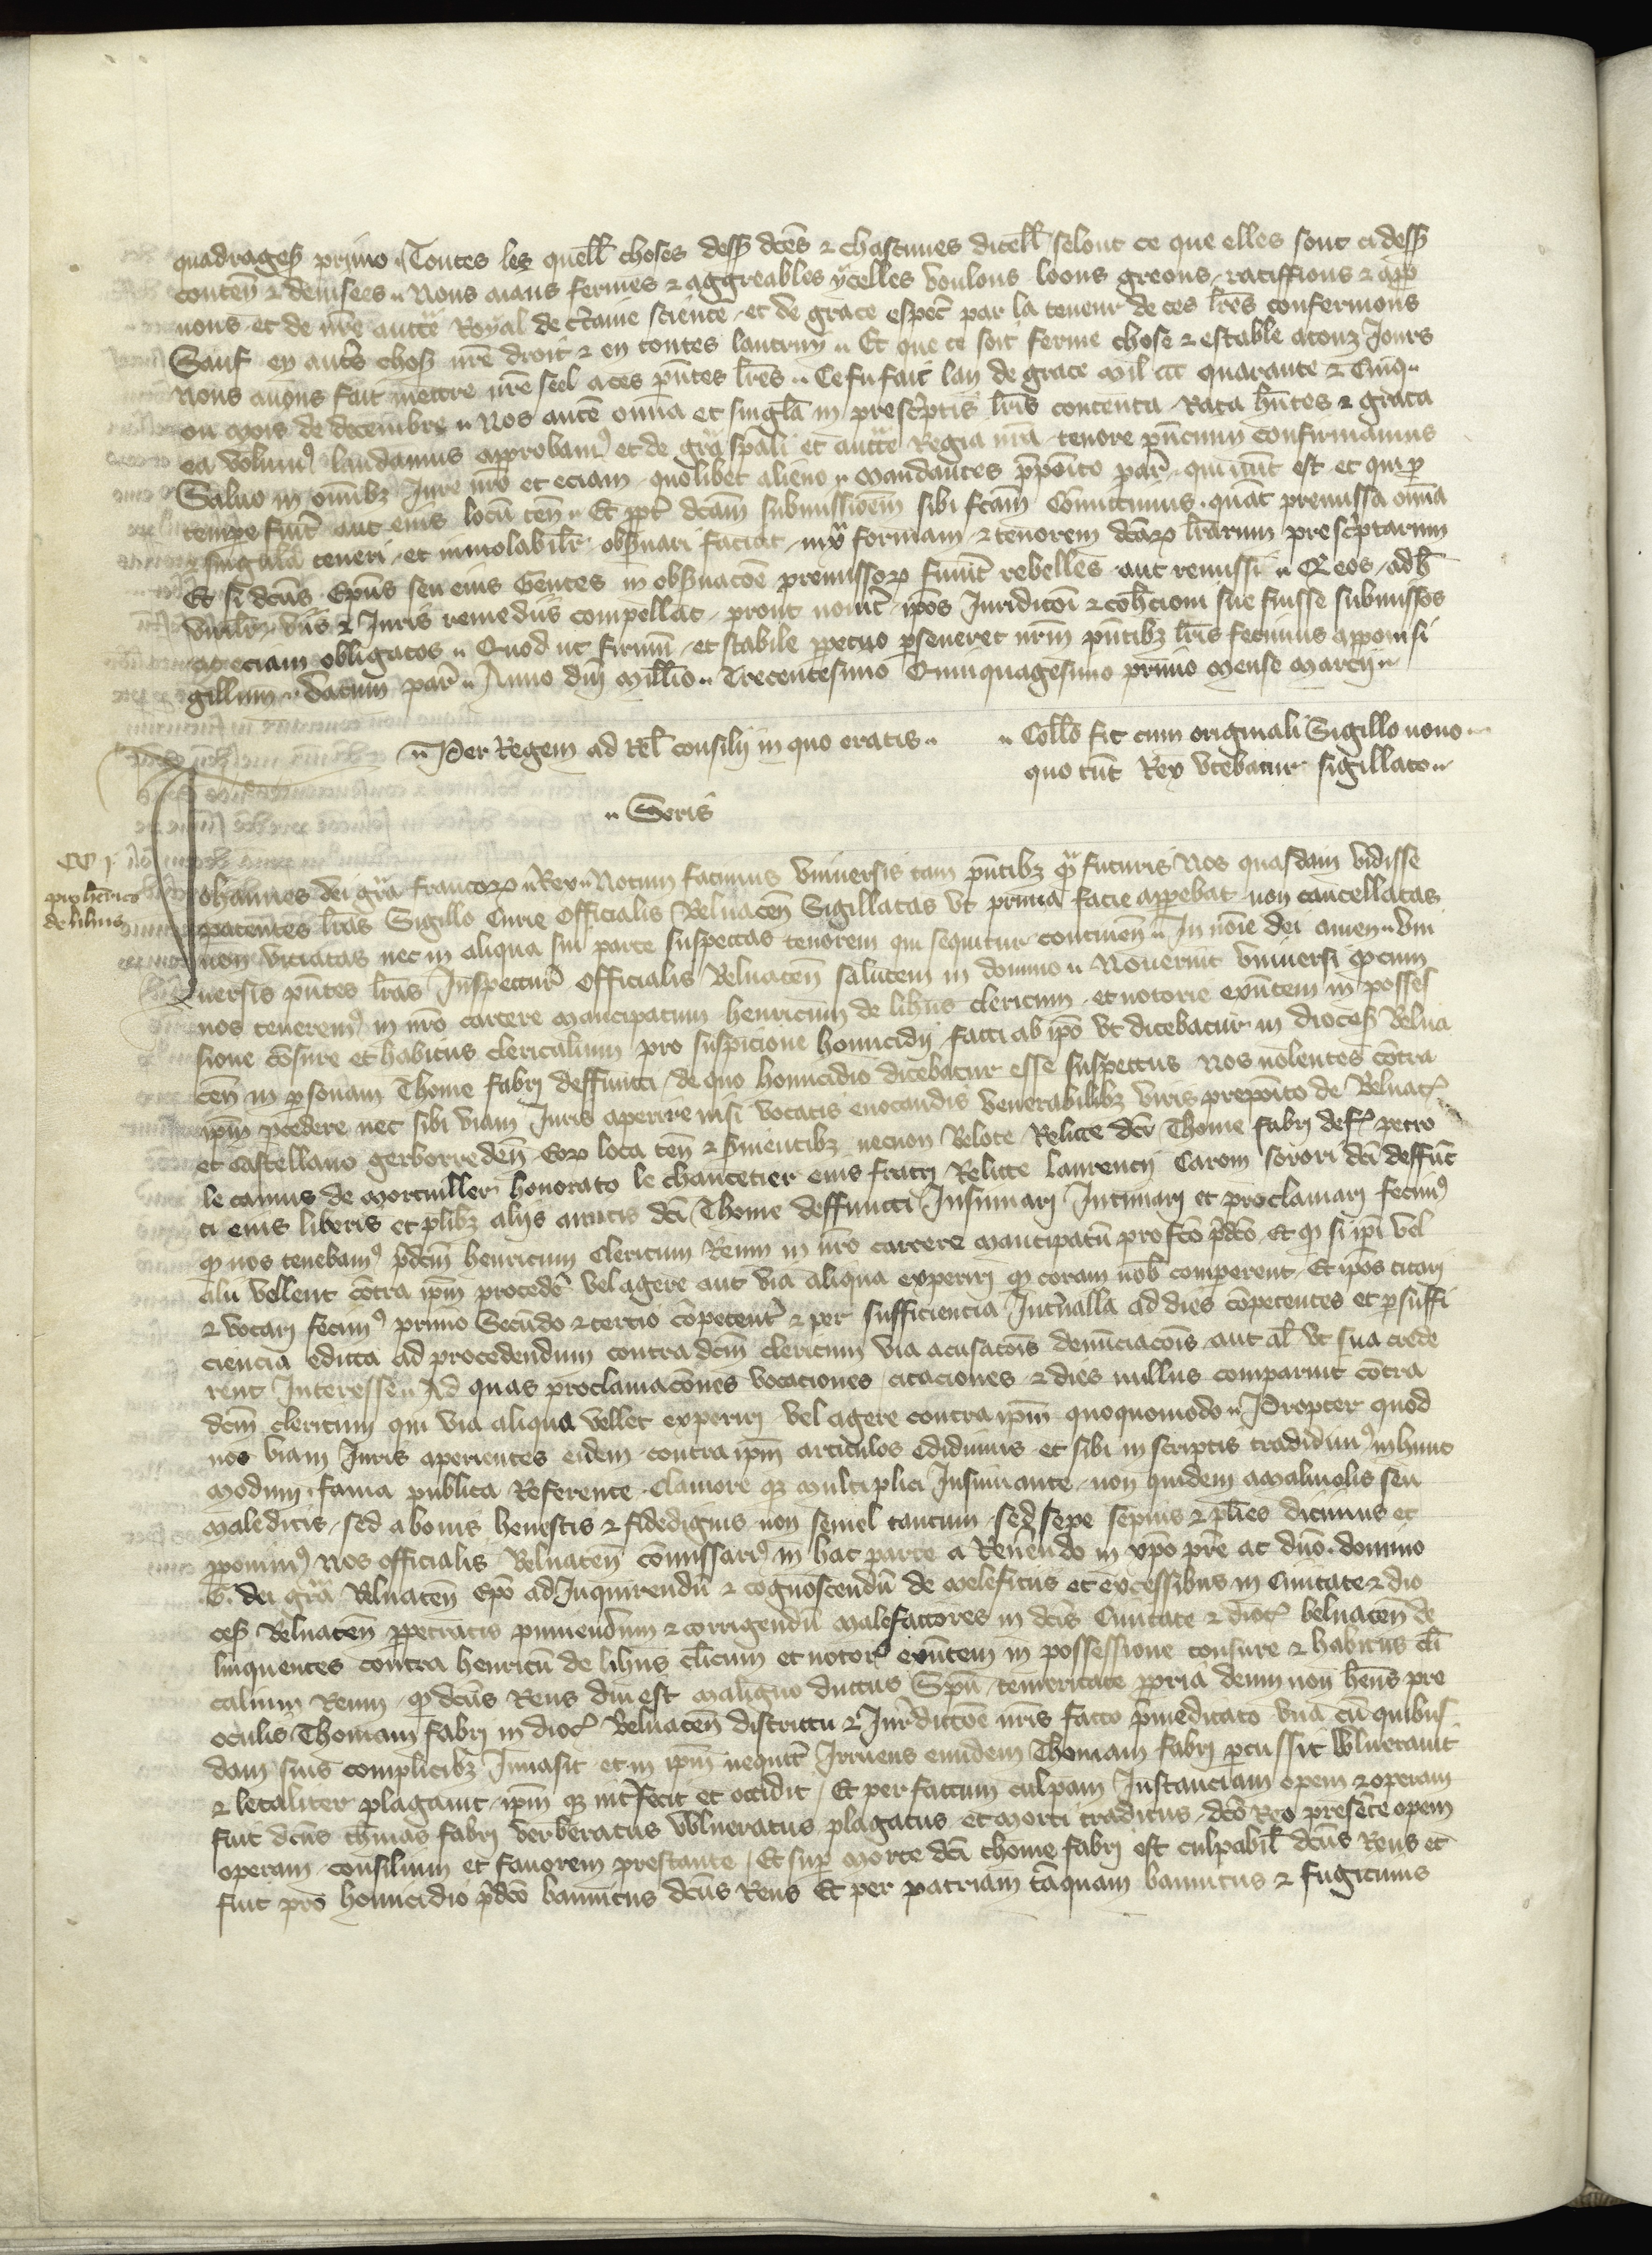 quadrages primo. Toutes les quell choses dess dcēs ⁊ chascunes dicell selont ce que elles sont ci dess
contēn ⁊ deuisees. Nous aians fermes ⁊ aggreables ycelles voulons loons greons ratiffions ⁊ app
uons et de nr̄e auctē Royal de c̄taine science et de grace espēc par la teneur de ces lr̄es confermons
Sauf en autr̄s chos nr̄e droit ⁊ en toutes lautruy. Et que ce soit ferme chose ⁊ estable atouz Jours
Nous auons fait mettre nr̄e seel aces pn̄tes lr̄es. Ce fu fait lan de grace mil ccc quarante ⁊ Cinq
ou mois de decembre. Nos autē omīa et singl̄a in prescr̄ptis lr̄is contenta Rata hn̄tes ⁊ grata
ea volum9 laudamus approbam9 et de grā spāli et auctē Regia nrā tenore pn̄cium confirmamus
Saluo in omībz Jure nrō et eciam quolibet alieno. Mandantes p̄pōito par̄ qui nūc est et qui p
tempe fuit̄ aut eius locū ten̄. Et ppt̄ dcām submissioēm sibi fcām Comittimus quat̄ premissa omīa
⁊ singula teneri et inuiolabilr̄ obs̄uari faciat iux̄ formam ⁊ tenorem dcāꝝ lr̄arum prescr̄ptarum
Et si dcūs Epūs seu eius Gentes in obs̄uacōe premissoꝝ fuint̄ rebelles aut remissi. Q eos adh̄
viis ⁊ Juris remediis compellat prout nouit̄ ipōs Juridicōi ⁊ coh̄cioni sue fuisse submissos
ac eciam obligatos. Quod ut firmū et stabile ppetuo pseueret nr̄m pn̄tibz lr̄is fecimus apponi si
gillum. Datum par̄. Anno dn̄i mill̄io. Trecentesimo Quinquagesimo primo mense marcij.
Per Regem ad Rel̄ consilij in quo eratis.
Coll̄o fit cum originali Sigillo nouo
quo tūc Rex vtebatur sigillato.
Seris
CC j
pro henrico
de lihus
Johannes dei grā francoꝝ Rex. Notum facimus vniuersis tam pn̄tibz qᵃ futuris Nos quasdam vidisse
patentes lrās Sigillo Curie Officialis Beluacen̄ Sigillatas vt prima facie appebat non cancellatas
non viciatas nec in aliqua sui parte suspectas tenorem qui sequitur continen̄. In noīe dei amen. Vni
uersis pn̄tes lrās Inspectur̄ Officialis Beluacen̄ salutem in domino. Nouerint vniuersi ꝙ cum
nos tenerem9 in nrō carcere mancipatum henricum de lihus clericum et notorie exn̄tem in posses
sione tōsure et habitus clericalium pro suspicione homicidij facti ab ipō vt dicebatur in dioces Belua
cen̄ in psonam Thome fabri deffuncti de quo homicidio dicebatur esse suspectus Nos nolentes cōtra
ipm̄ pcedere nec sibi viam Juris aperire nisi vocatis euocandis venerabilibz viris prepōito de Beluac̄
et castellano gerborreden̄ eoꝝ loca ten̄ ⁊ s̄uientibz necnon Belote Relicte dcī Thome fabri def̄ petro
le camus de mortuiller honorato le chaucetier eius fratri Relicte laurencij Carom sorori dcī deffūc
ti eius liberis et plibz alijs amicis dcī Thome deffuncti Insinuari Intimari et proclamari fecim9
ꝙ nos tenebam9 p̄dcm̄ henricum Clericum Reum in nrō carcere mancipatū pro fcō p̄dcō Et ꝙ si ipī vel
alii vellent cōtra ipm̄ procedēr vel agere aut via aliqua experiri ꝙ coram nob̄ comperent Et ipōs citari
⁊ vocari fecim9 primo Secūdo ⁊ tercio cōpetent̄ ⁊ per sufficiencia Int̄ualla ad dies cōpetentes et p suffi
ciencia edicta ad procedendum contra dcm̄ clericum via acusacōis denūciacōis aut al̄ vt sua crede
rent Interesse. Ad quas proclamacōnes vocaciones citaciones ⁊ dies nullus comparuit cōtra
dcm̄ clericum qui via aliqua vellet experiri vel agere contra ipm̄ quoquomodo. Propter quod
nos viam Juris aperientes eidem contra ipm̄ articulos edidimus et sibi in scriptis tradidim9 in hunc
modum. fama publica Referente clamore qꝫ multiplici Insinuante non quidem a maliuolis seu
maledicis sed a bonis honestis ⁊ fidedignis non semel tantum sed sepe sepius ⁊ plīes dicimus et
pponim9 Nos officialis Beluacen̄ cōmissari9 in hac parte a Reuendo in xpō pr̄e ac dnō domino
G. dei grā Beluacen̄ Epō ad Inquirendū ⁊ cognoscendū de maleficiis et excessibus in Ciuitate ⁊ dio
ces Beluacen̄ ppetratis puniendum ⁊ corrigendū malefactores in dcīs Ciuitate ⁊ dioc̄ beluacen̄ de
linquentes contra henricū de lihus clīcum et notor̄ exn̄tem in possessione tonsure ⁊ habitus cli
calium Reum ꝙ dcūs Reus diu est maligno ductus Spū temeritate ppria deum non hn̄s pre
oculis Thomam fabri in dioc̄ Beluacen̄ districtu ⁊ Jur̄dictōe nr̄is facto p̄meditato vna cū quibus
dam suis complicibz Inuasit et in ipm̄ nequit̄ Irruens eundem Thomam fabri pcussit vulnerauit
⁊ letaliter plagauit ipm̄ qꝫ int̄fecit et occidit Et per factum culpam Instanciam opem ⁊ operam
fuit dcūs thomas fabri verberatus vulneratus plagatus et morti traditus dcō Reo presēte opem
operam consilium et fauorem prestante Et sup morte dcī thome fabri est culpabil̄ dcūs Reus et
fuit pro homicidio p̄dcō bannitus dcūs Reus Et per patriam tāquam bannitus ⁊ fugitiuus